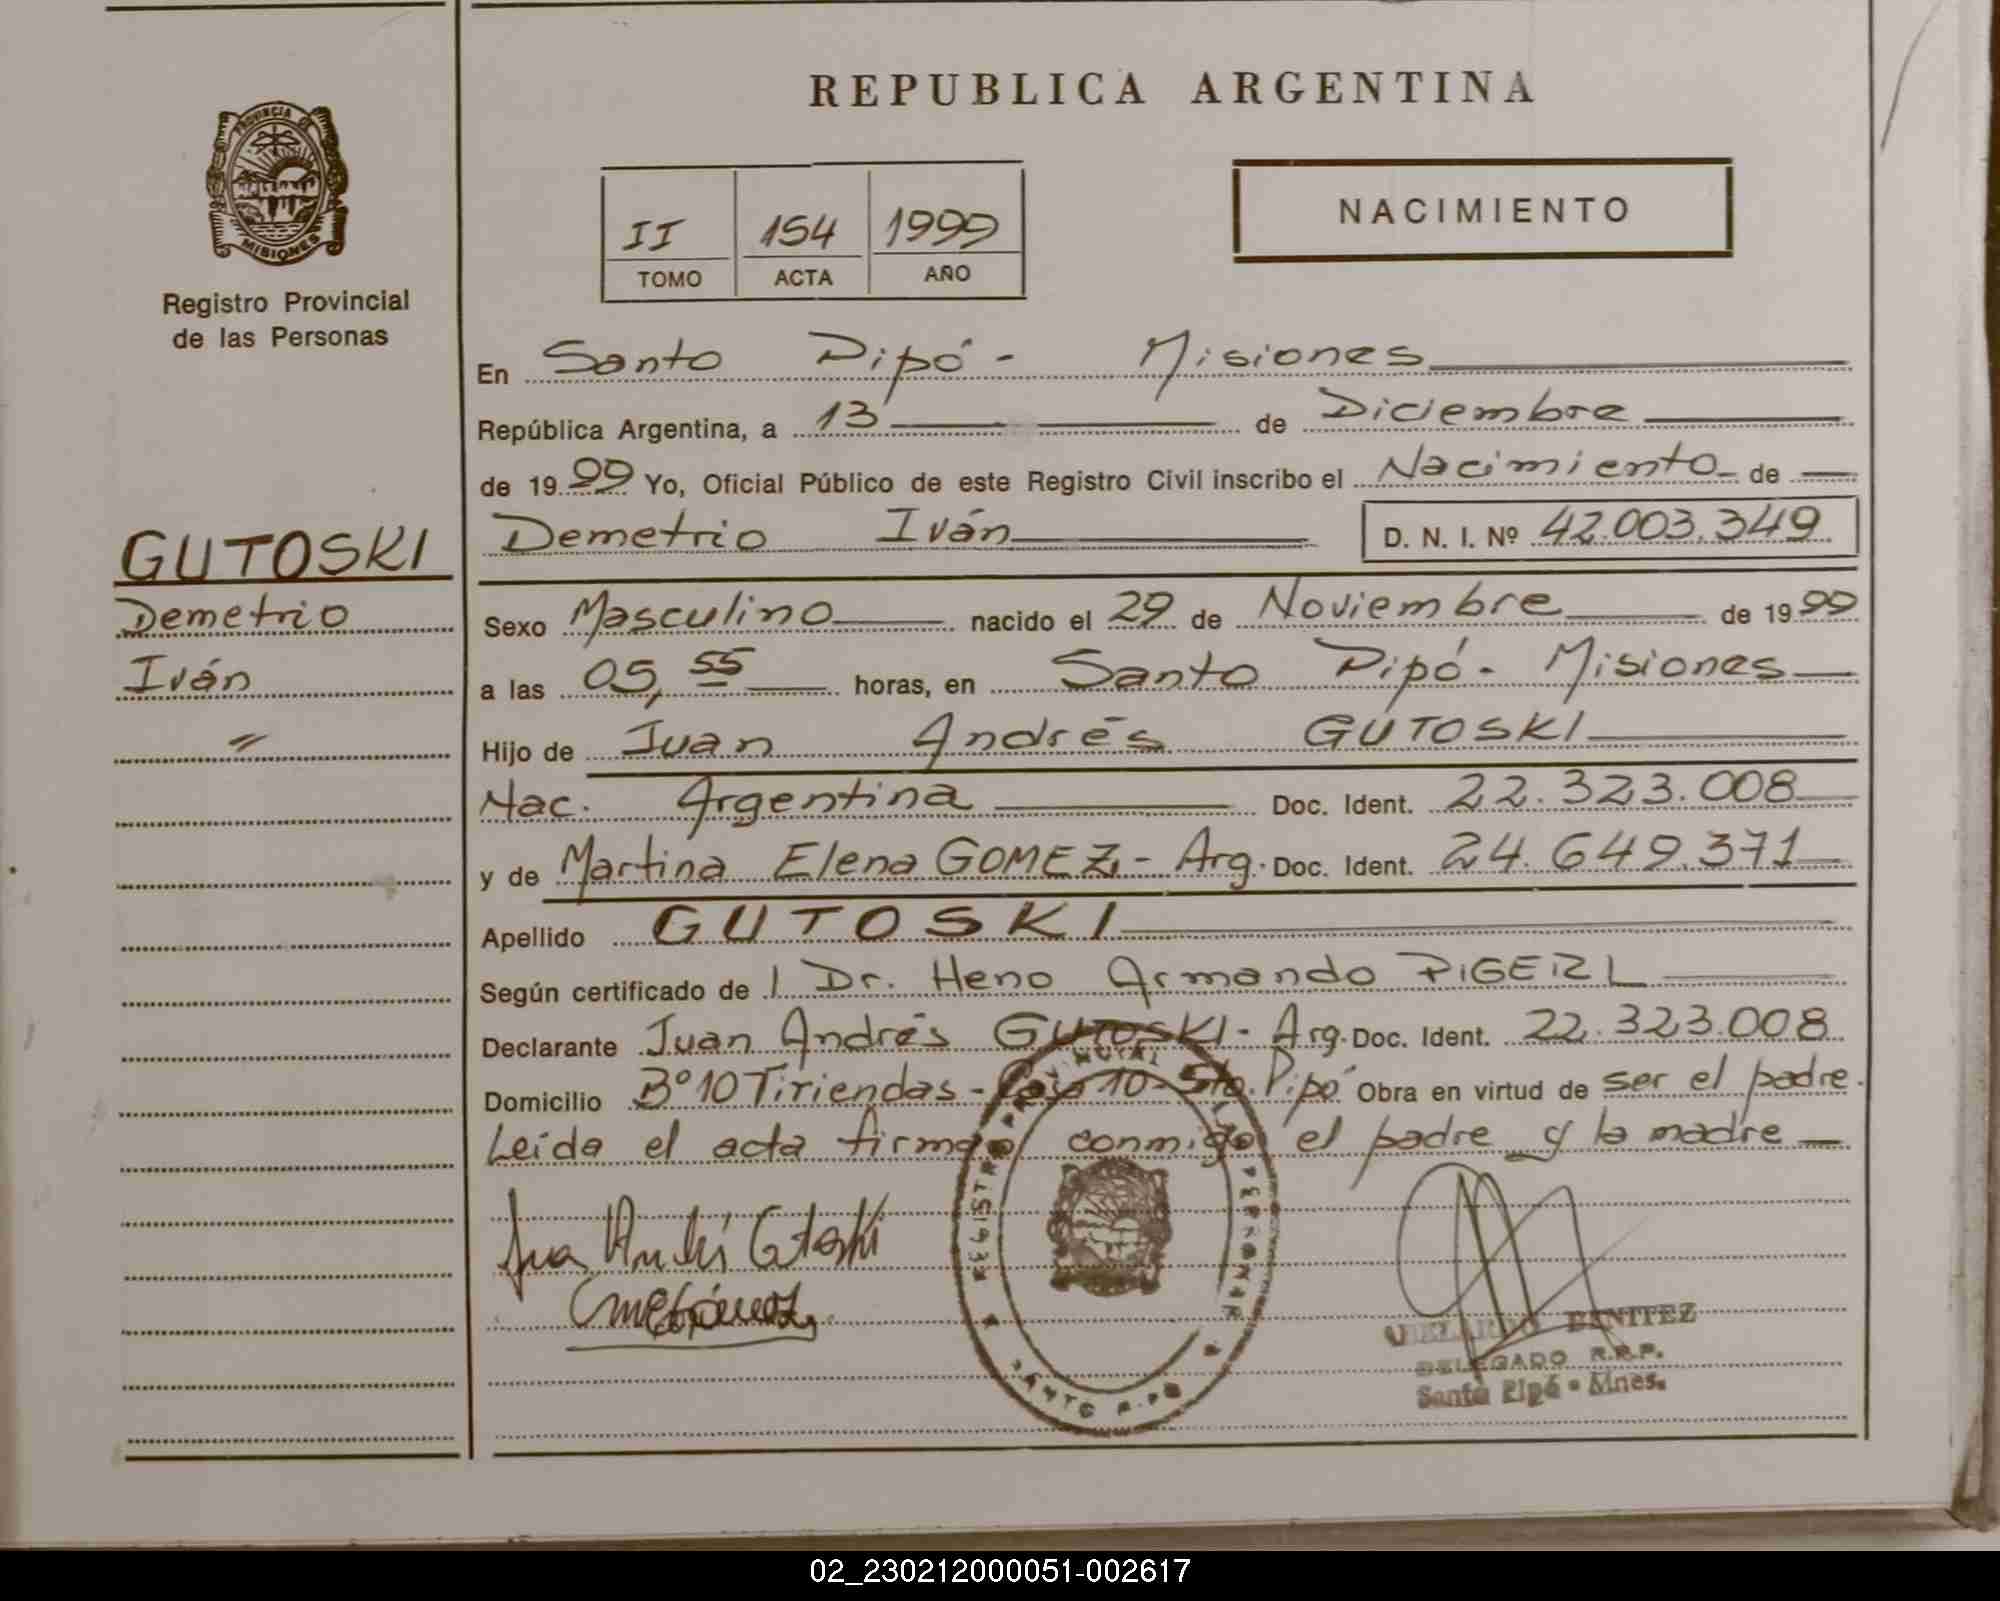 REPUBLICA ARGENTINA
PROVINCIA DE
MISIONES
Registro Provincial
de las Personas
II 154 1999
TOMO ACTA AÑO
NACIMIENTO
En Santo Pipó - Misiones
República Argentina, a 13 de Diciembre
de 1999 Yo, Oficial Público de este Registro Civil inscribo el Nacimiento de
Demetrio Iván D. N. I. Nº 42.003.349
GUTOSKI
Demetrio
Iván
Sexo Masculino nacido el 29 de Noviembre de 1999
a las 05,55 horas, en Santo Pipó - Misiones
Hijo de Juan Andrés GUTOSKI
Nac. Argentina Doc. Ident. 22.323.008
y de Martina Elena GOMEZ - Arg. Doc. Ident. 24.649.371
Apellido GUTOSKI
Según certificado de l Dr. Heno Armando PIGERL
Declarante Juan Andrés GUTOSKI - Arg. Doc. Ident. 22.323.008
Domicilio Bº 10 Tiriendas - Casa 10 - Sto. Pipó Obra en virtud de ser el padre.
Leída el acta firman conmigo el padre y la madre
BENITEZ
DELEGADO R.R.P.
Santo Pipó - Mnes.
02_230212000051-002617